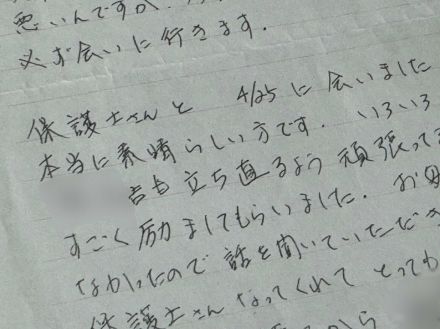 悪いんですか
必ず会いに行きます.
保護士さんと 4/25に会いました
本当に素晴らしい方です. いろいろ
も立ち直るよう頑張って
すごく励ましてもらいました. お
なかったので話を聞いていただき
保護士さんなってくれて とっても
から